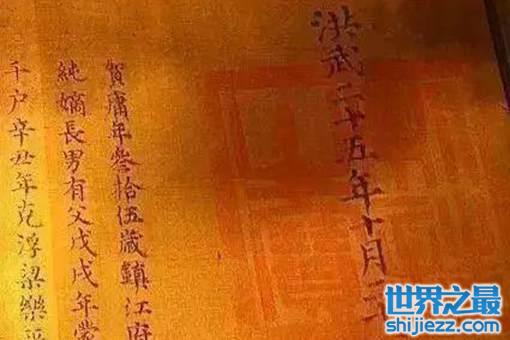 洪武二十五年十月二
賀庸年叁拾伍歲鎮江府
純嫡長男有父戊戌年
千户辛丑年克浮梁樂平
世界之最
shijiezz.com